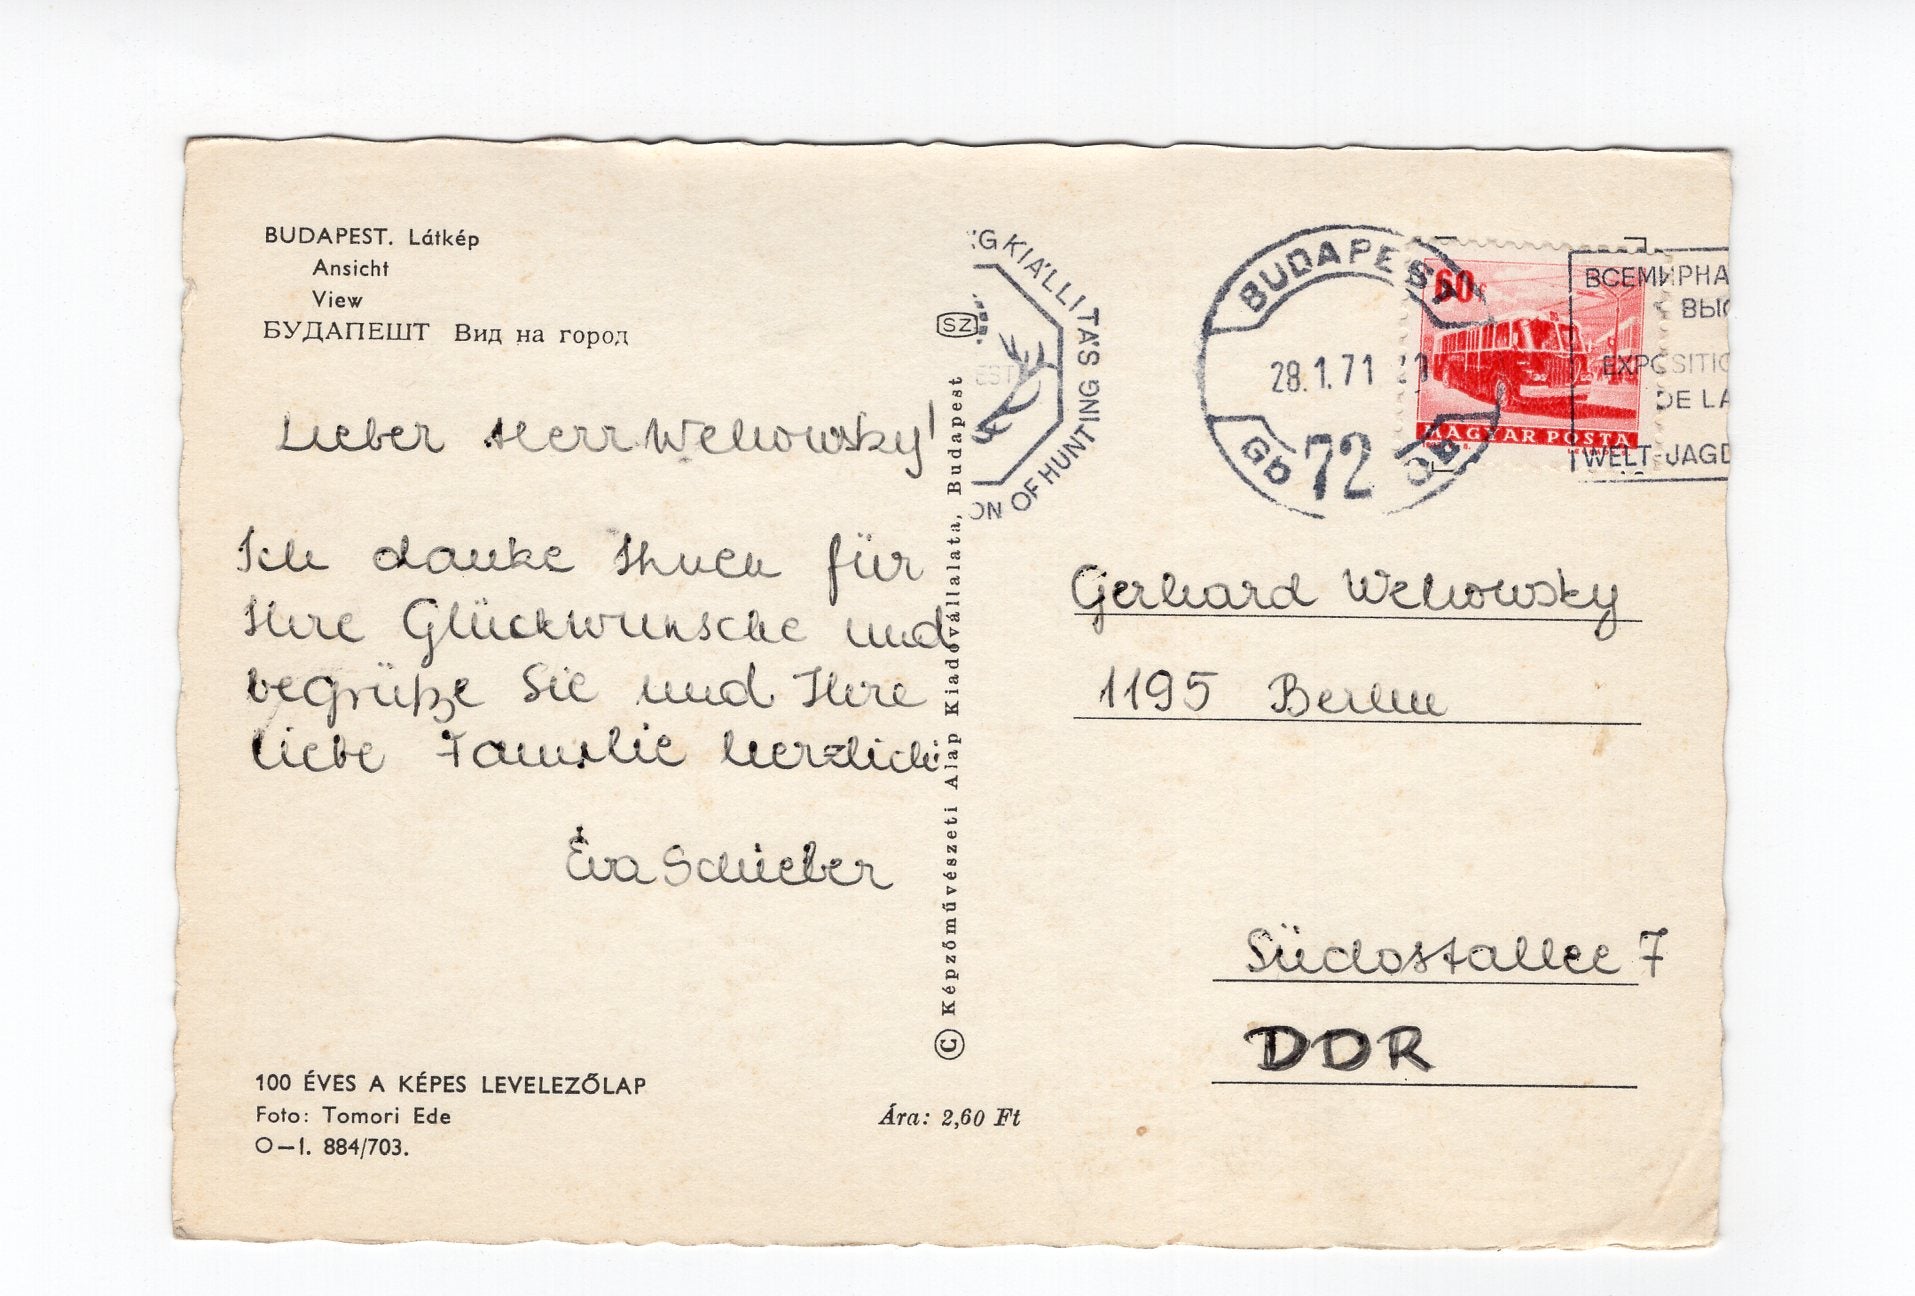 BUDAPEST. Látkép
Ansicht
View
БУДАПЕШТ Вид на город
Lieber Herr Wehowsky!
Ich danke Ihnen für
Ihre Glückwünsche und
begrüße Sie und Ihre
liebe Familie herzlich:
Éva Schieber
100 ÉVES A KÉPES LEVELEZŐLAP
Foto: Tomori Ede
O–I. 884/703.
Ára: 2,60 Ft
SZ
© Képzőművészeti Alap Kiadóvállalata, Budapest
G KIÁLLITÁS
EST
ON OF HUNTING
BUDAPEST
28.1.71
72
60f
MAGYAR POSTA
ВСЕМИРНА
ВЫС
EXPOSITIO
DE LA
WELT-JAGD
Gerhard Wehowsky
1195 Berlin
Südostallee 7
DDR